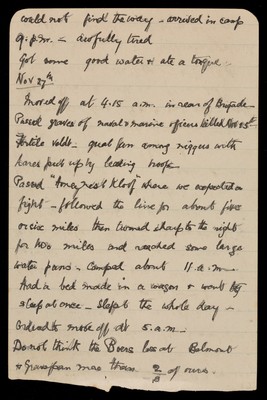 could not find the way – arrived in camp
9. p.m. – awfully tired
Got some good water & ate a tongue.
Nov 27th
Moved off at 4.15 a.m. in rear of Brigade –
Passed graves of naval & marine officers killed Nov 25th
veldt – great fun among niggers with
hares put up by leading troops
Passed " Kloof" where we expected a
fight – followed the line for about five
or six miles then turned sharp to the right
for two miles and reached some large
water pans – Camped about 11. a.m. –
Had a bed made in a wagon & went to
sleep at once – Slept the whole day –
Ordered to move off at 5. a.m. –
Do not think the Boers loss at Belmont
& Graspan more than 2/3 of ours.